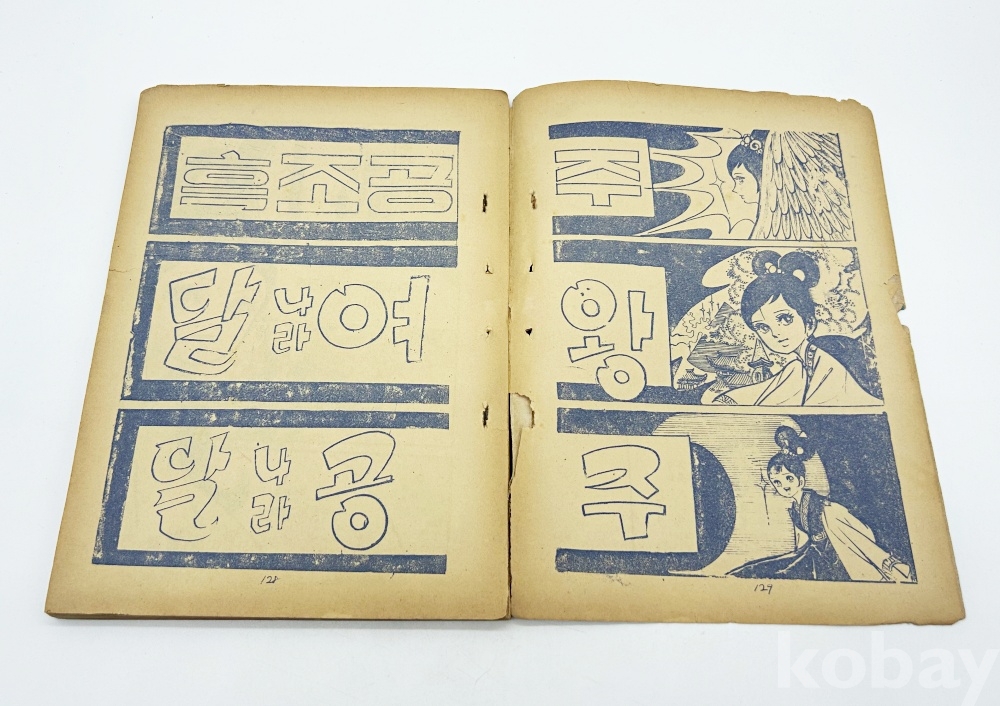 흑조공
달나라여
달나라공
128
주
왕
주
129
kobay